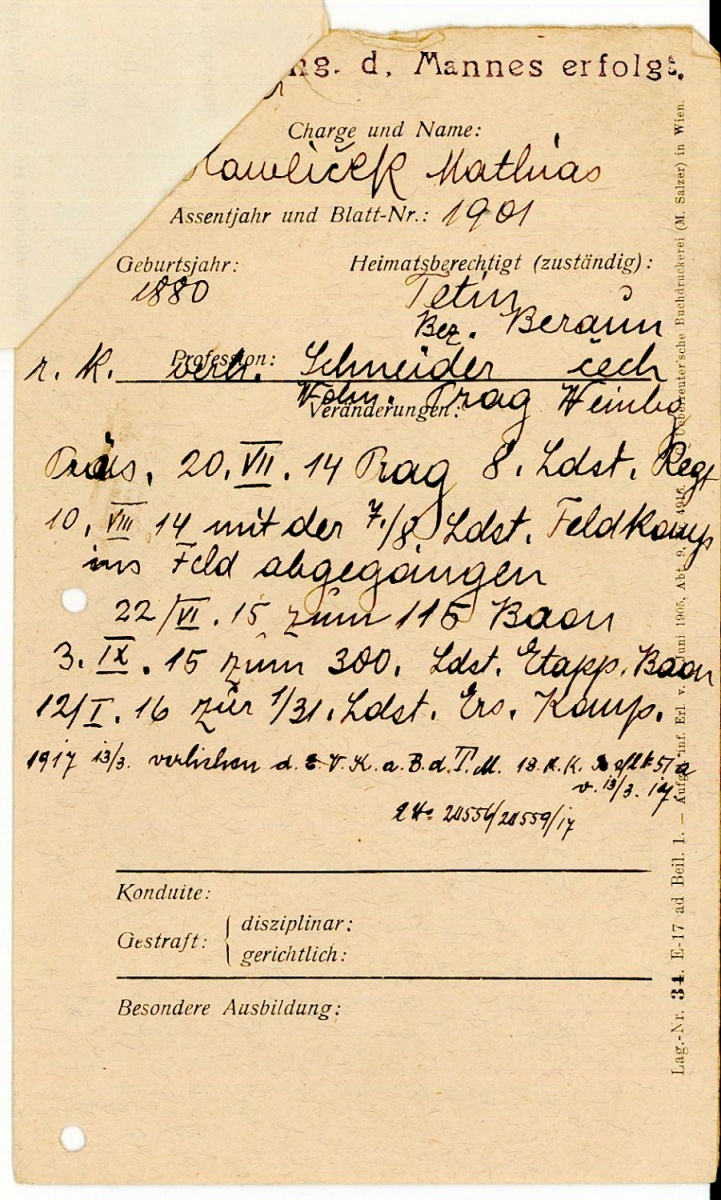 ng. d. Mannes erfolgt.
Charge und Name:
lawliček Mathias
Assentjahr und Blatt-Nr.: 1901
Geburtsjahr:
1880
Heimatsberechtigt (zuständig):
Tetin
Bez. Beraun
Profession:
r. k. verh. Schneider čech
Wohn. Prag Weinbg
Veränderungen:
Präs. 20. VII. 14 Prag 8. Ldst. Regt
10. VIII 14 mit der 7./8 Ldst. Feldkomp
ins Feld abgegangen
22/VI. 15 zum 115 Baon
3. IX. 15 zum 300. Ldst. Etapp. Baon
12/I. 16 zur 1/31. Ldst. Ers. Komp.
1917 13/3. verliehen d. E. V. K. a. B. d. T. M. 18. K. K.
v. 13/3. 17.
20556/20559/17
Konduite:
Gestraft: { disziplinar:
gerichtlich:
Besondere Ausbildung:
Lag.-Nr. 34. E-17 ad Beil. 1. — inf. Erl. v. Juni 1905, Abt. 9, 4916. Ueberreuter'sche Buchdruckerei (M. Salzer) in Wien.